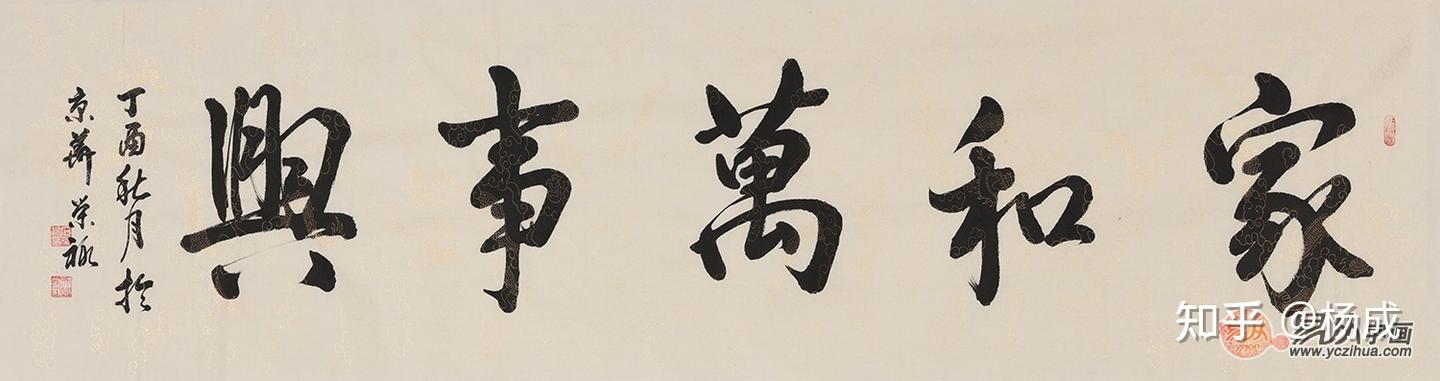 家和萬事興
丁酉秋月於
京華荣禄
知乎 @杨成
易从字画
www.yczihua.com